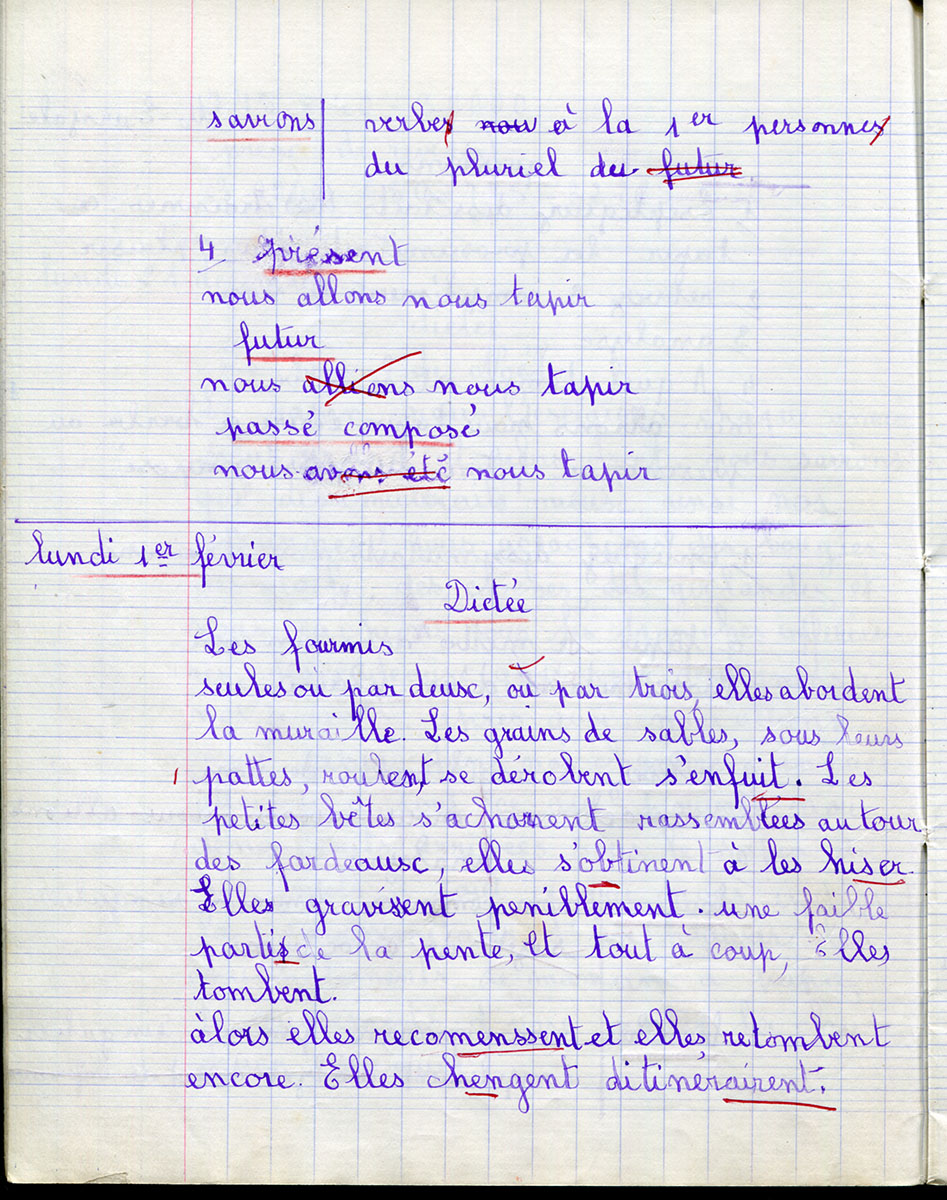 savions | verbes nou à la 1er personnes
du pluriel du futur
4 présent
nous allons nous tapir
futur
nous alliens nous tapir
passé composé
nous avons été nous tapir
lundi 1er février
Dictée
Les fourmis
seules ou par deusc, ou par trois, elles abordent
la muraille. Les grains de sables, sous leurs
pattes, roulent, se dérobent s'enfuit. Les
petites bêtes s'acharnent rassemblées autour
des fardeausc, elles s'obtinent à les hiser.
Elles gravisent peniblement. une faible
partis de la pente, Et tout à coup, Elles
tombent.
àlors elles recomenssent et elles retombent
encore. Elles chengent ditinérairent.